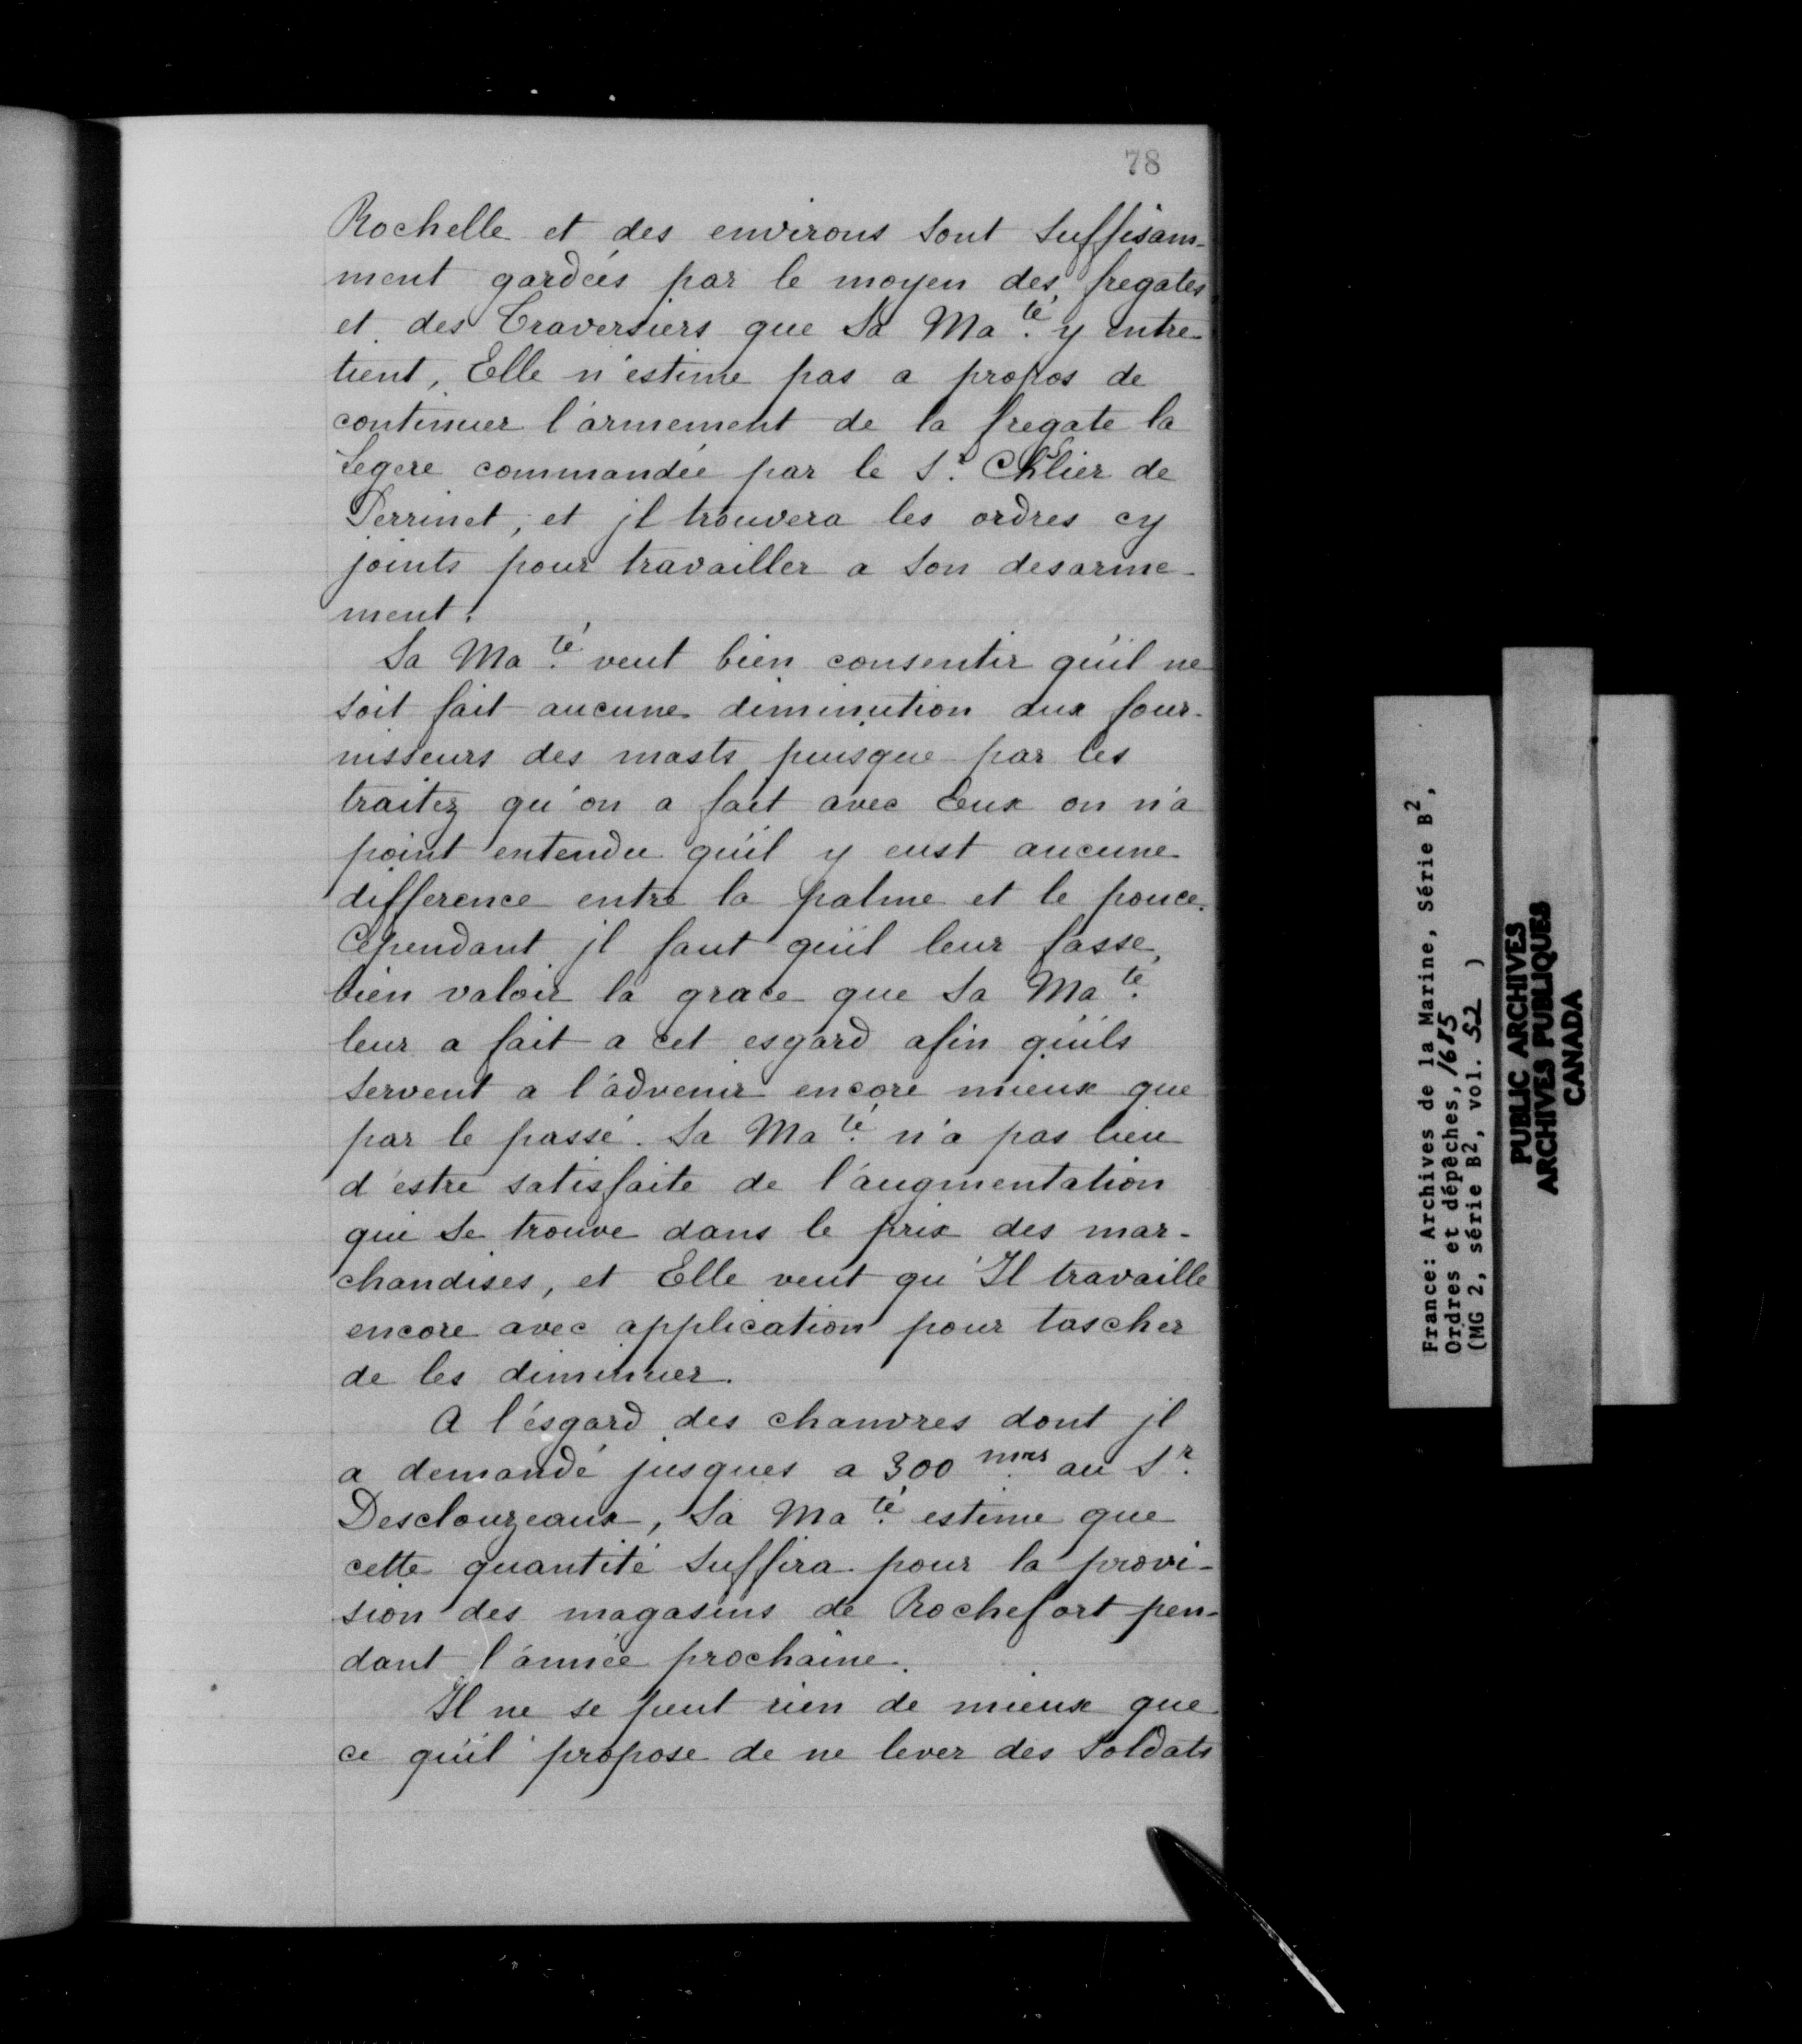 78
Rochelle et des environs sont suffisam-
ment gardées par le moyen des fregates
et des Traversiers que Sa Ma.té y entre-
tient, Elle n'estime pas a propos de
continuer l'armement de la fregate la
Legere commandée par le Sr. Chlier de
Perrinet, et jl trouvera les ordres cy
joints pour travailler a son desarme-
ment.
Sa Ma.té veut bien consentir qu'il ne
soit fait aucune diminution aux four-
nisseurs des masts puisque par les
traitez qu'on a fait avec Eux on n'a
point entendu qu'il y eust aucune
difference entre la palme et le pouce.
Cependant jl faut qu'il leur fasse
bien valoir la grace que Sa Ma.té
leur a fait a cet esgard afin qu'ils
servent a l'advenir encore mieux que
par le passé. Sa Ma.té n'a pas lieu
d'estre satisfaite de l'augmentation
qui se trouve dans le prix des mar-
chandises, et Elle veut qu'Il travaille
encore avec application pour tascher
de les diminuer.
A l'esgard des chanvres dont jl
a demandé jusques a 300 mrs au Sr.
Desclouzeaux, Sa Ma.té estime que
cette quantité suffira pour la provi-
sion des magasins de Rochefort pen-
dant l'année prochaine.
Il ne se peut rien de mieux que
ce qu'il propose de ne lever des Soldats
France: Archives de la Marine, Série B2,
Ordres et dépêches, 1685
(MG 2, série B2, vol. 52 )
PUBLIC ARCHIVES
ARCHIVES PUBLIQUES
CANADA